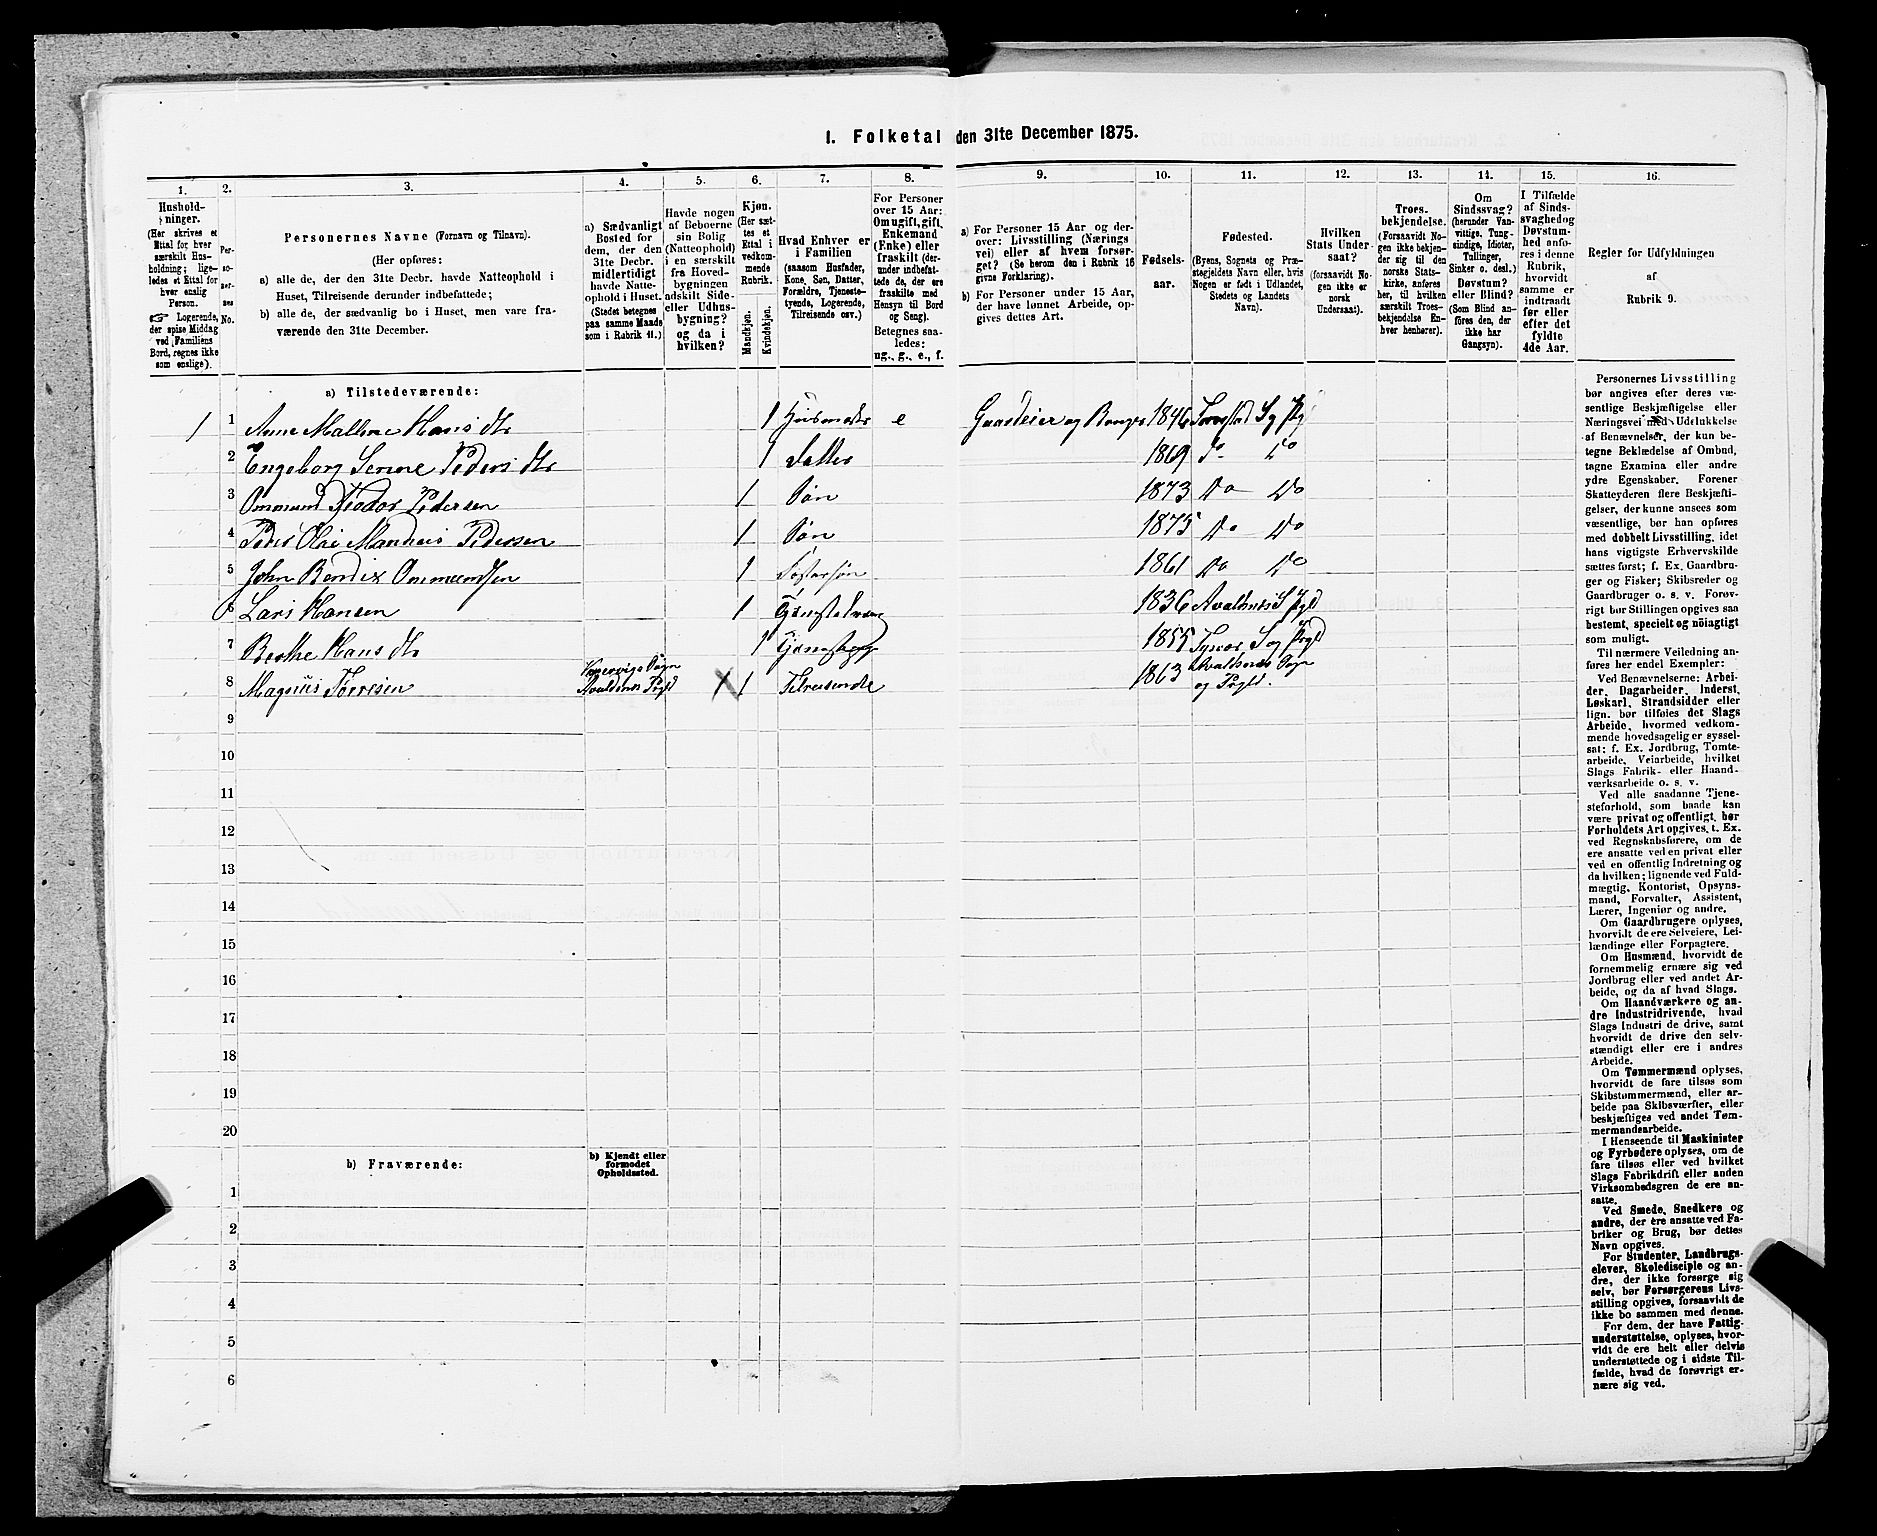 1. Folketal den 31te December 1875.
1.
Hushold-
ninger.
(Her skrives et
Ettal for hver
særskilt Hus-
holdning; lige-
ledes et Ettal for
hver enslig
Person.
☞ Logerende,
der spise Middag
ved Familiens
Bord, regnes ikke
som enslige).
2.
Per-
so-
ner-
nes
No.
3.
Personernes Navne (Fornavn og Tilnavn).
(Her opføres:
a) alle de, der den 31te Decbr. havde Natteophold i
Huset, Tilreisende derunder indbefattede;
b) alle de, der sædvanlig bo i Huset, men vare fra-
værende den 31te December.
4.
a) Sædvanligt
Bosted for
dem, der den
31te Decbr.
midlertidigt
havde Natte-
ophold i Huset.
(Stedet betegnes
paa samme Maade
som i Rubrik 11.)
5.
Havde nogen
af Beboerne
sin Bolig
(Natteophold)
i en særskilt
fra Hoved-
bygningen
adskilt Side-
eller Udhus-
bygning?
og da i
hvilken?
6.
Kjøn.
(Her sæt-
tes et
Ettal i
vedkom-
mende
Rubrik.
Mandkjøn.
Kvindekjøn.
7.
Hvad Enhver er
i Familien
(saasom Husfader,
Kone, Søn, Datter,
Forældre, Tjeneste-
tyende, Logerende,
Tilreisende osv.)
8.
For Personer
over 15 Aar:
Omugift, gift,
Enkemand
(Enke) eller
fraskilt (der-
under indbefat-
tede de, der ere
fraskilte med
Hensyn til Bord
og Seng).
Betegnes saa-
ledes:
ug., g., e., f.
9.
a) For Personer 15 Aar og der-
over: Livsstilling (Nærings
vei) eller af hvem forsør-
get? (Se herom den i Rubrik 16
givne Forklaring).
b) For Personer under 15 Aar,
der have lønnet Arbeide, op-
gives dettes Art.
10.
Fødsels-
aar.
11.
Fødested.
(Byens, Sognets og Præ-
stegjeldets Navn eller, hvis
Nogen er født i Udlandet,
Stedets og Landets
Navn).
12.
Hvilken
Stats Under-
saat?
(forsaavidt No-
gen ikke er
norsk
Undersaat).
13.
Troes-
bekjendelse.
(Forsaavidt No-
gen ikke bekjen-
der sig til den
norske Stats-
kirke, anføres
her, til hvilken
særskilt Troes-
bekjendelse En-
hver henhører).
14.
Om
Sindssvag?
(herunder Van-
vittige, Tung-
sindige, Idioter,
Tullinger,
Sinker o. desl.)
Døvstum?
eller Blind?
(Som Blind an-
føres den, der
ikke har
Gangsyn).
15.
I Tilfælde
af Sinds-
svaghedog
Døvstum-
hed anfø-
res i denne
Rubrik,
hvorvidt
samme er
indtraadt
før eller
efter det
fyldte
4de Aar.
16.
Regler for Udfyldningen
af
Rubrik 9.
a) Tilstedeværende:
1 1 Anne Malline Hans dtr 1 Huusmoder e Gaardeier og Bruger 1846 Sg Pg
2 Engeborg Serine Peders dtr 1 Datter 1869 Do Do
3 Ommund Teodor Pedersen 1 Søn 1873 Do Do
4 Peder Olai Pedersen 1 Søn 1875 Do Do
5 John Bendix Ommundsen 1 Fostersøn 1861 Do Do
6 Lars Hansen 1 1836 Avaldsnes S Pgld
7 Berthe Hans dtr 1 1855 Tysvær S og Prgld
8 Magnus Torresen Sogn Avaldsnes Pgld X 1 Tilreisende 1863 Avaldsnes Sogn
og Pægld.
9
10
11
12
13
14
15
16
17
18
19
20
b) Fraværende:
b) Kjendt eller
formodet
Opholdssted.
1
2
3
4
5
6
Personernes Livsstilling
bør angives efter deres væ-
sentlige Beskjæftigelse eller
Næringsvei med Udelukkelse
af Benævnelser, der kun be-
tegne Beklædelse af Ombud,
tagne Examina eller andre
ydre Egenskaber. Forener
Skatteyderen flere Beskjæfti-
gelser, der kunne ansees som
væsentlige, bør han opføres
med dobbelt Livsstilling, idet
hans vigtigste Erhvervskilde
sættes først; f. Ex. Gaardbru-
ger og Fisker; Skibsreder og
Gaardbruger o. s. v. Forøv-
rigt bør Stillingen opgives saa
bestemt, specielt og nöiagtigt
som muligt.
Til nærmere Veiledning an-
føres her endel Exempler:
Ved Benævnelserne: Arbei-
der, Dagarbeider, Inderst,
Løskarl, Strandsidder eller
lign. bør tilføies det Slags
Arbeide, hvormed vedkom-
mende hovedsagelig er syssel-
sat; f. Ex. Jordbrug, Tomte-
arbeide, Veiarbeide, hvilket
Slags Fabrik- eller Haand-
værksarbeide o. s. v.
Ved alle saadanne Tjene-
steforhold, som baade kan
være privat og offentligt, bør
Forholdets Art opgives, t. Ex.
ved Regnskabsførere, om de
ere ansatte ved en privat eller
ved en offentlig Indretning og
da hvilken; lignende ved Fuld-
mægtig, Kontorist, Opsyns-
mand, Forvalter, Assistent,
Lærer, Ingeniør og andre.
Om Gaardbrugere oplyses,
hvorvidt de ere Selveiere, Lei-
lændinge eller Forpagtere.
Om Husmænd, hvorvidt de
fornemmelig ernære sig ved
Jordbrug eller ved andet Ar-
beide, og da af hvad Slags.
Om Haandværkere og an-
dre Industridrivende, hvad
Slags Industri de drive, samt
hvorvidt de drive den selv-
stændigt eller ere i andres
Arbeide.
Om Tømmermænd oplyses,
hvorvidt de fare tilsøs som
Skibstømmermænd, eller ar-
beide paa Skibsværfter, eller
beskjæftiges ved andet Tøm-
mermandsarbeide.
I Henseende til Maskinister
og Fyrbødere oplyses, om de
fare tilsøs eller ved hvilket
Slags Fabrikdrift eller anden
Virksombedsgren de ere an-
satte.
Ved Smede, Snedkere og
andre, der ere ansatte ved Fa-
briker og Brug, bør dettes
Navn opgives.
For Studenter, Landbrugs-
elever, Skoledisciple og an-
dre, der ikke forsørge sig
selv, bør Forsørgerens Livs-
stilling opgives, forsaavidt de
ikke bo sammen med denne.
For dem, der have Fattig-
understøttelse, oplyses, hvor-
vidt de ere helt eller delvis
understøttede og i sidste Til-
fælde, hvad de forøvrigt er-
nære sig ved.